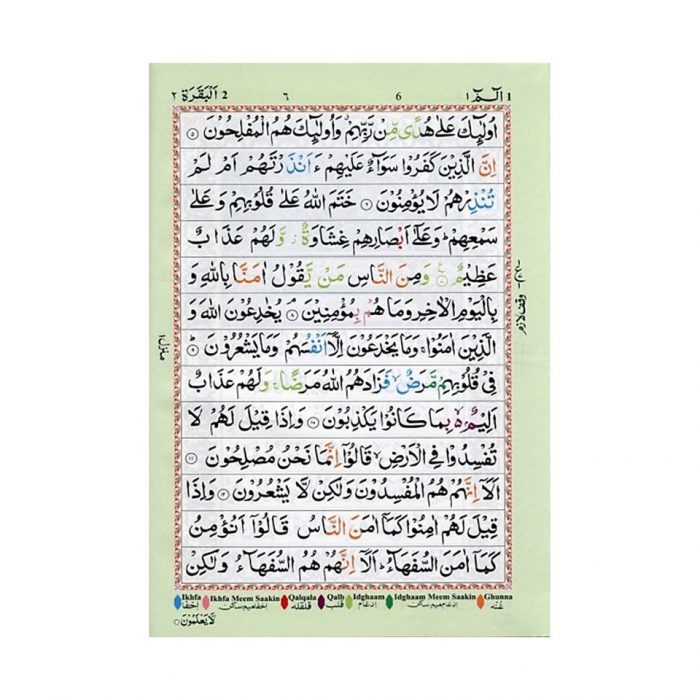 الٓمّٓ 1 ١ 6 ٦ 2 اَلْبَقَرَة ٢
اُولٰٓئِكَ عَلٰى هُدًى مِّنْ رَّبِّهِمْ ۙ وَاُولٰٓئِكَ هُمُ الْمُفْلِحُوْنَ ۝٥
اِنَّ الَّذِيْنَ كَفَرُوْا سَوَآءٌ عَلَيْهِمْ ءَاَنْذَرْتَهُمْ اَمْ لَمْ
تُنْذِرْهُمْ لَا يُؤْمِنُوْنَ ۝٦ خَتَمَ اللّٰهُ عَلٰى قُلُوْبِهِمْ وَعَلٰى
سَمْعِهِمْ ؕ وَعَلٰٓى اَبْصَارِهِمْ غِشَاوَةٌ ؗ وَّلَهُمْ عَذَابٌ
عَظِيْمٌ ۝٧ وَمِنَ النَّاسِ مَنْ يَّقُوْلُ اٰمَنَّا بِاللّٰهِ وَ
بِالْيَوْمِ الْاٰخِرِ وَمَا هُمْ بِمُؤْمِنِيْنَ ۝٨ يُخٰدِعُوْنَ اللّٰهَ وَ
الَّذِيْنَ اٰمَنُوْا ۚ وَمَا يَخْدَعُوْنَ اِلَّآ اَنْفُسَهُمْ وَمَا يَشْعُرُوْنَ ۝٩
فِيْ قُلُوْبِهِمْ مَّرَضٌ ۙ فَزَادَهُمُ اللّٰهُ مَرَضًا ۚ وَلَهُمْ عَذَابٌ
اَلِيْمٌ ۢ ۙ بِمَا كَانُوْا يَكْذِبُوْنَ ۝١٠ وَاِذَا قِيْلَ لَهُمْ لَا
تُفْسِدُوْا فِي الْاَرْضِ ۙ قَالُوْٓا اِنَّمَا نَحْنُ مُصْلِحُوْنَ ۝١١
اَلَآ اِنَّهُمْ هُمُ الْمُفْسِدُوْنَ وَلٰكِنْ لَّا يَشْعُرُوْنَ ۝١٢ وَاِذَا
قِيْلَ لَهُمْ اٰمِنُوْا كَمَآ اٰمَنَ النَّاسُ قَالُوْٓا اَنُؤْمِنُ
كَمَآ اٰمَنَ السُّفَهَآءُ ؕ اَلَآ اِنَّهُمْ هُمُ السُّفَهَآءُ وَلٰكِنْ
وقف لازم
منزل ١
Ikhfa Ikhfa Meem Saakin Qalqala Qalb Idghaam Idghaam Meem Saakin Ghunna
اِخفا اِخفا میم ساکن قلقله قلب اِدغام اِدغام میم ساکن غُنّه
لَّا يَعْلَمُوْنَ ۝